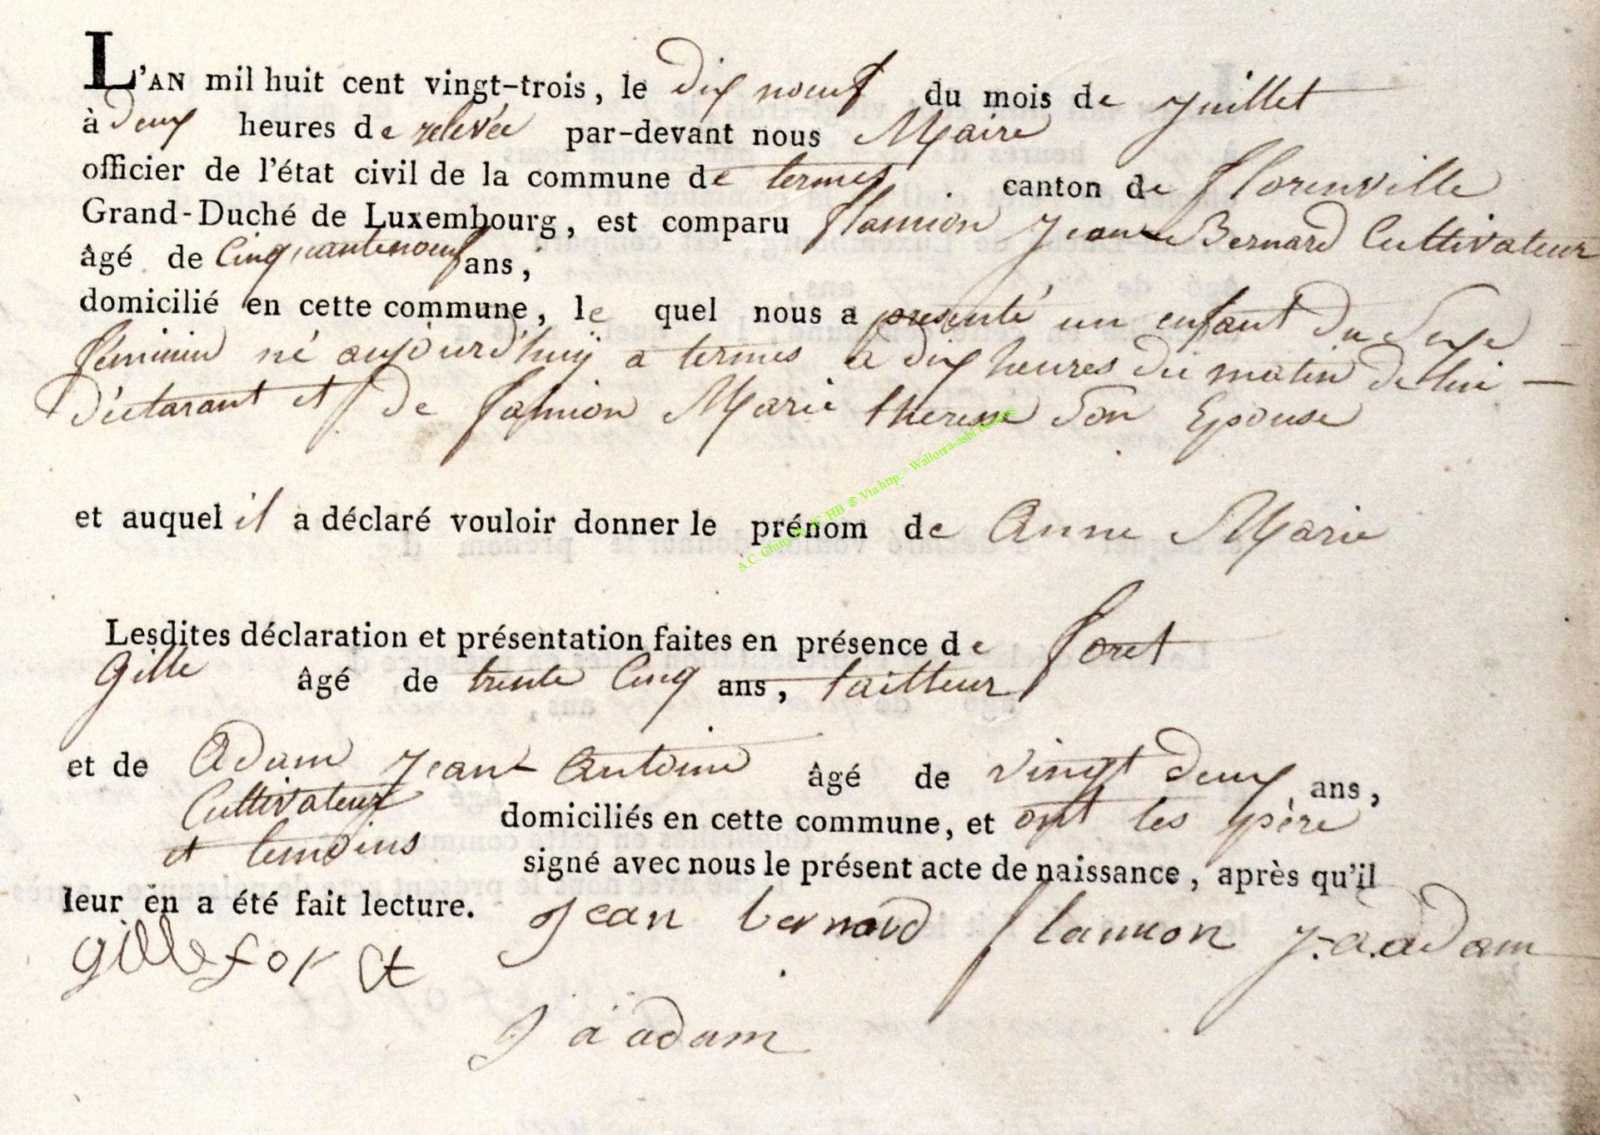 L'AN mil huit cent vingt-trois, le dix noeuf du mois de juillet
à deux heures de relevée par-devant nous Maire
officier de l'état civil de la commune de termes canton de florenville
Grand-Duché de Luxembourg, est comparu flamion Jean Bernard Cultivateur
âgé de Cinquante noeuf ans,
domicilié en cette commune, le quel nous a presenté un enfant du Sexe
féminin né aujourd'huij a termes a dix heures du matin de lui
déclarant et de Marie therese Son Epouse
et auquel il a déclaré vouloir donner le prénom de Anne Marie
Lesdites déclaration et présentation faites en présence de foret
Gille âgé de trente Cinq ans, tailleur
et de Adam Jean Antoine âgé de vingt deux ans,
Cultivateur domiciliés en cette commune, et ont les père
et temoins signé avec nous le présent acte de naissance, après qu'il
leur en a été fait lecture.
gille foret Jean bernard flamion J. a. adam
J a adam